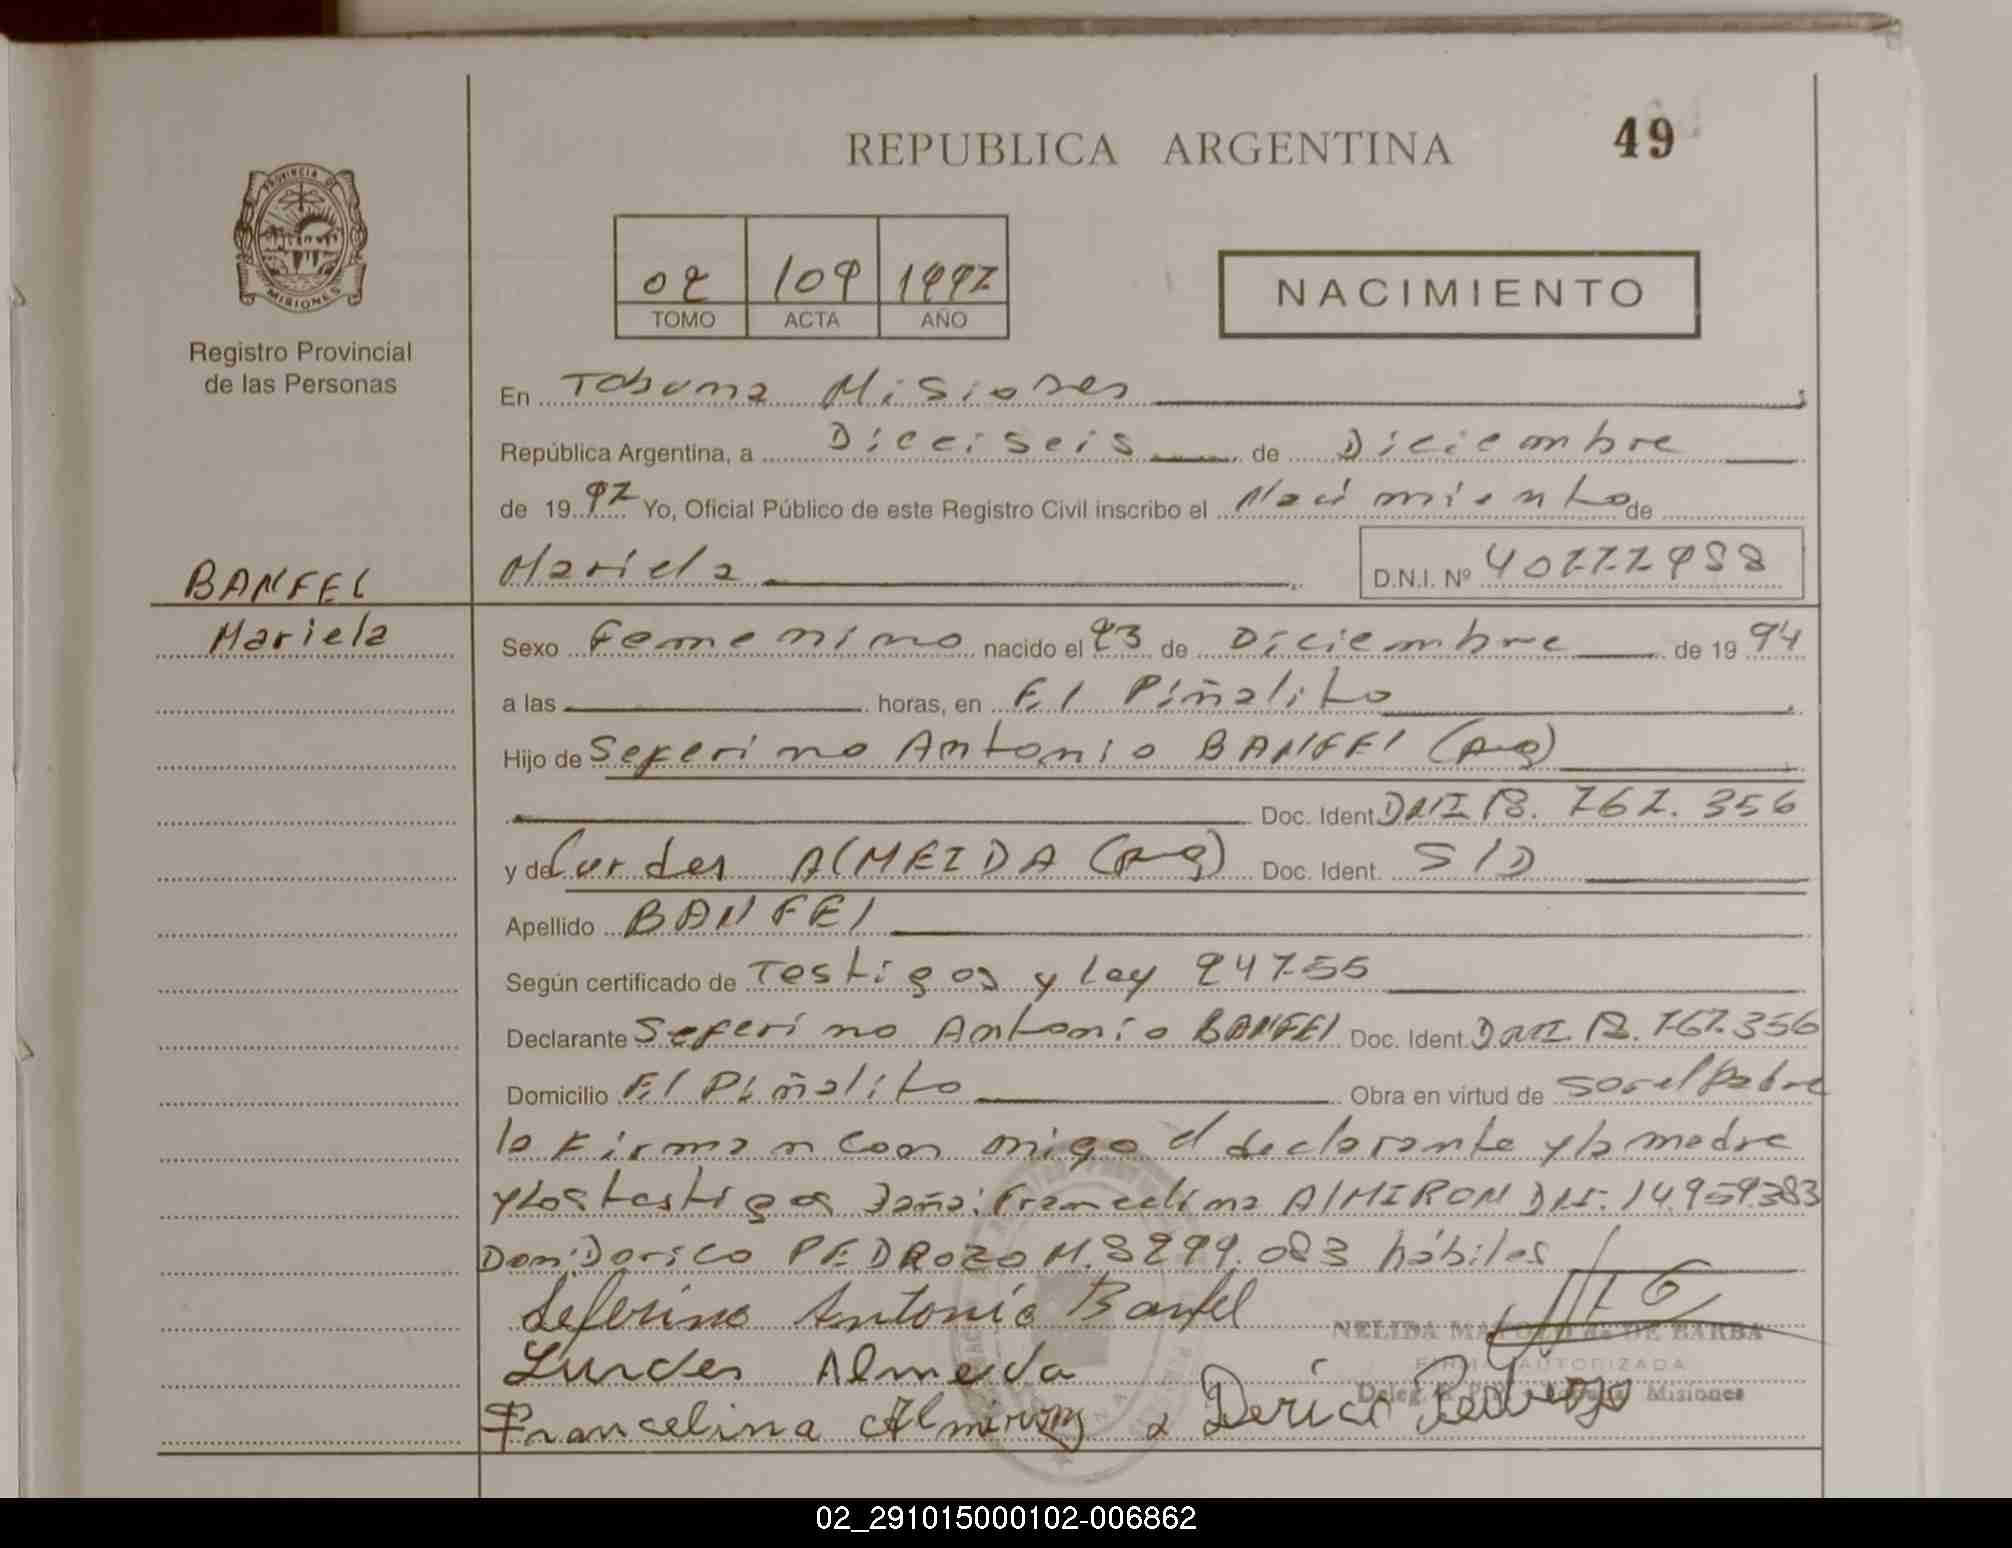 REPUBLICA ARGENTINA
49
PROVINCIA DE
MISIONES
Registro Provincial
de las Personas
02 109 1997
TOMO ACTA AÑO
NACIMIENTO
En Tobuna Misiones
República Argentina, a Dieciseis de Diciembre
de 1997 Yo, Oficial Público de este Registro Civil inscribo el Nacimiento de
Mariela D.N.I. Nº 40777988
BANFEL
Mariela
Sexo Femenino nacido el 23 de Diciembre de 1994
a las horas, en El Piñalito
Hijo de Seferino Antonio BANFEl (Arg)
Doc. Ident DNI 18. 767. 356
y de Lurdes AlMEIDA (Arg) Doc. Ident. S/D
Apellido BANFEl
Según certificado de Testigos y Ley 24755
Declarante Seferino Antonio BANFEl Doc. Ident. DNI. 18. 767.356
Domicilio El Piñalito Obra en virtud de ser el Padre
lo Firman con migo el declarante y la madre
y los testigos Doña: Francelina AlMIRON DNI. 14.959.383
Don: Dorico PEDROZO M. 8299.083 hábiles
Seferino Antonio Banfel
Lurdes Almeida
Francelina Almiron Derico Pedrozo
NELIDA DE BARBA
FIRMA AUTORIZADA
Deleg. Misiones
02_291015000102-006862